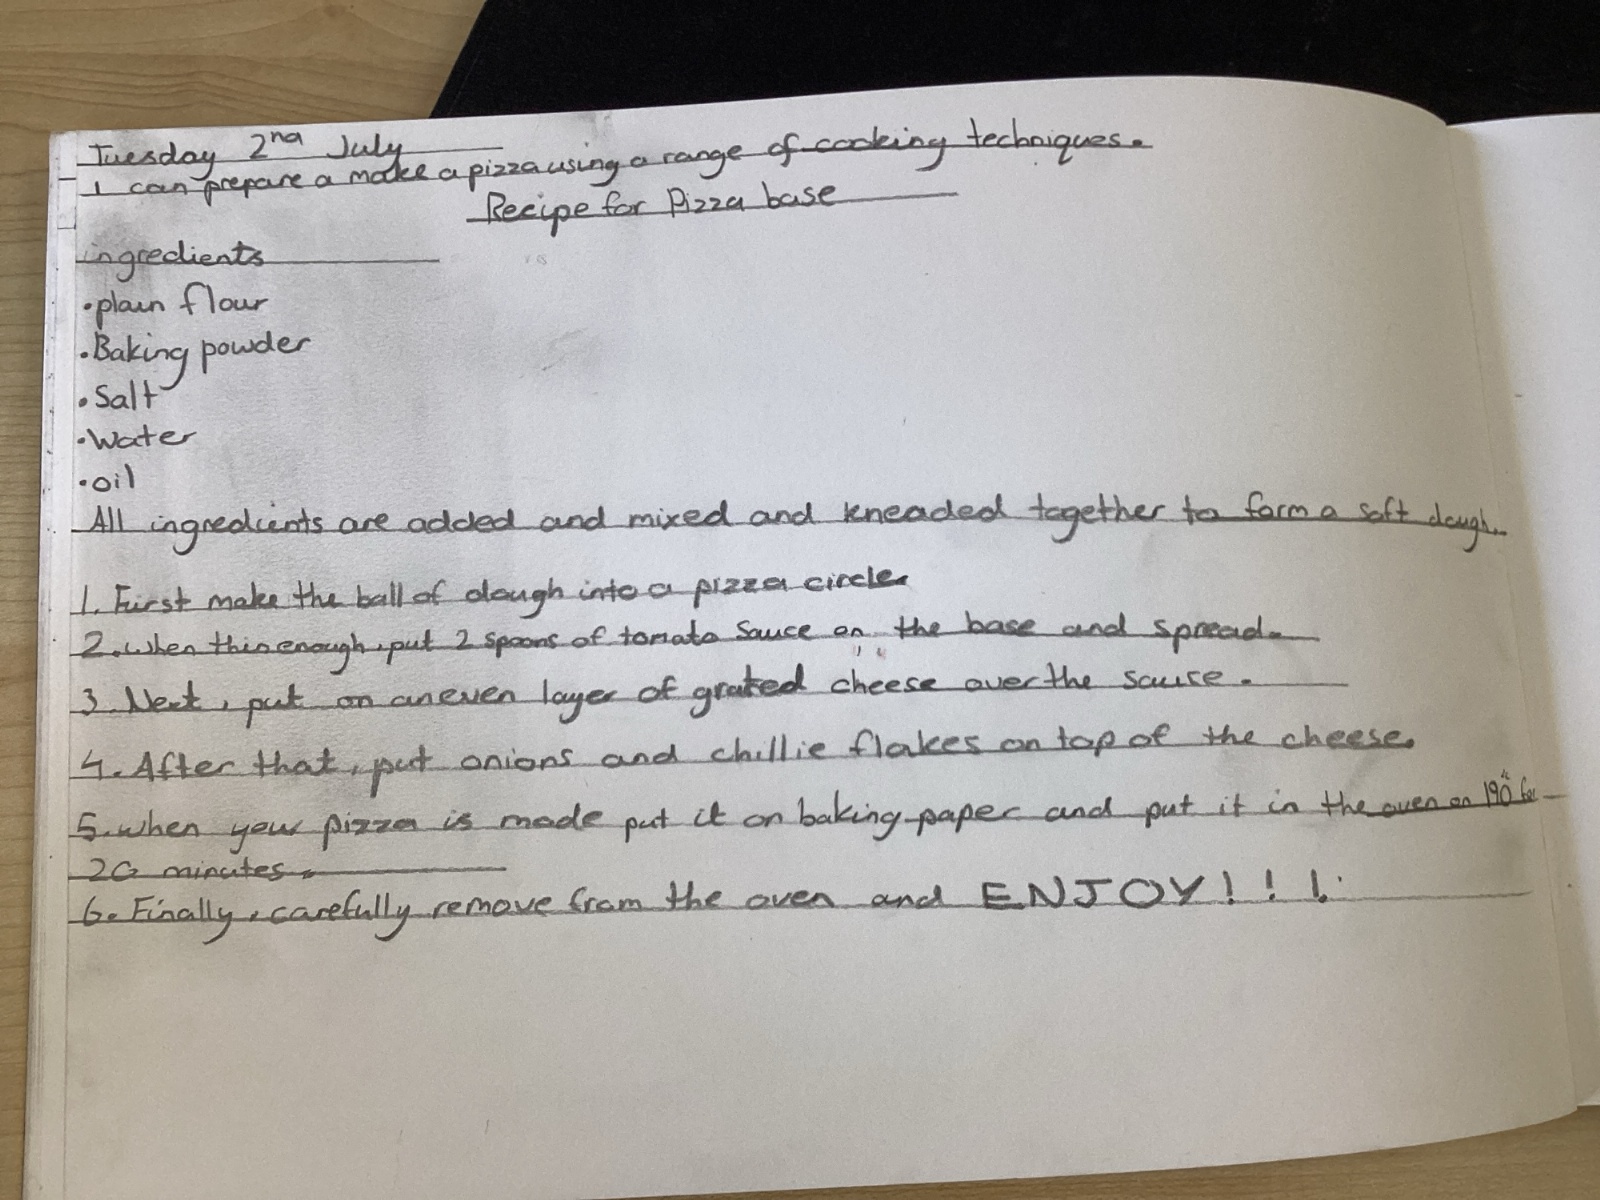 Tuesday 2nd July
I can prepare a make a pizza using a range of cooking techniques.
Recipe for Pizza base
ingredients
• plain flour
• Baking powder
• Salt
• Water
• oil
All ingredients are added and mixed and kneaded together to form a soft dough.
1. First make the ball of dough into a pizza circle
2. when thin enough, put 2 spoons of tomato Sauce on the base and spread.
3. Next, put on an even layer of grated cheese over the sauce.
4. After that, put onions and chillie flakes on top of the cheese.
5. when your pizza is made put it on baking paper and put it in the oven on 190° for
20 minutes.
6. Finally, carefully remove from the oven and ENJOY!!!